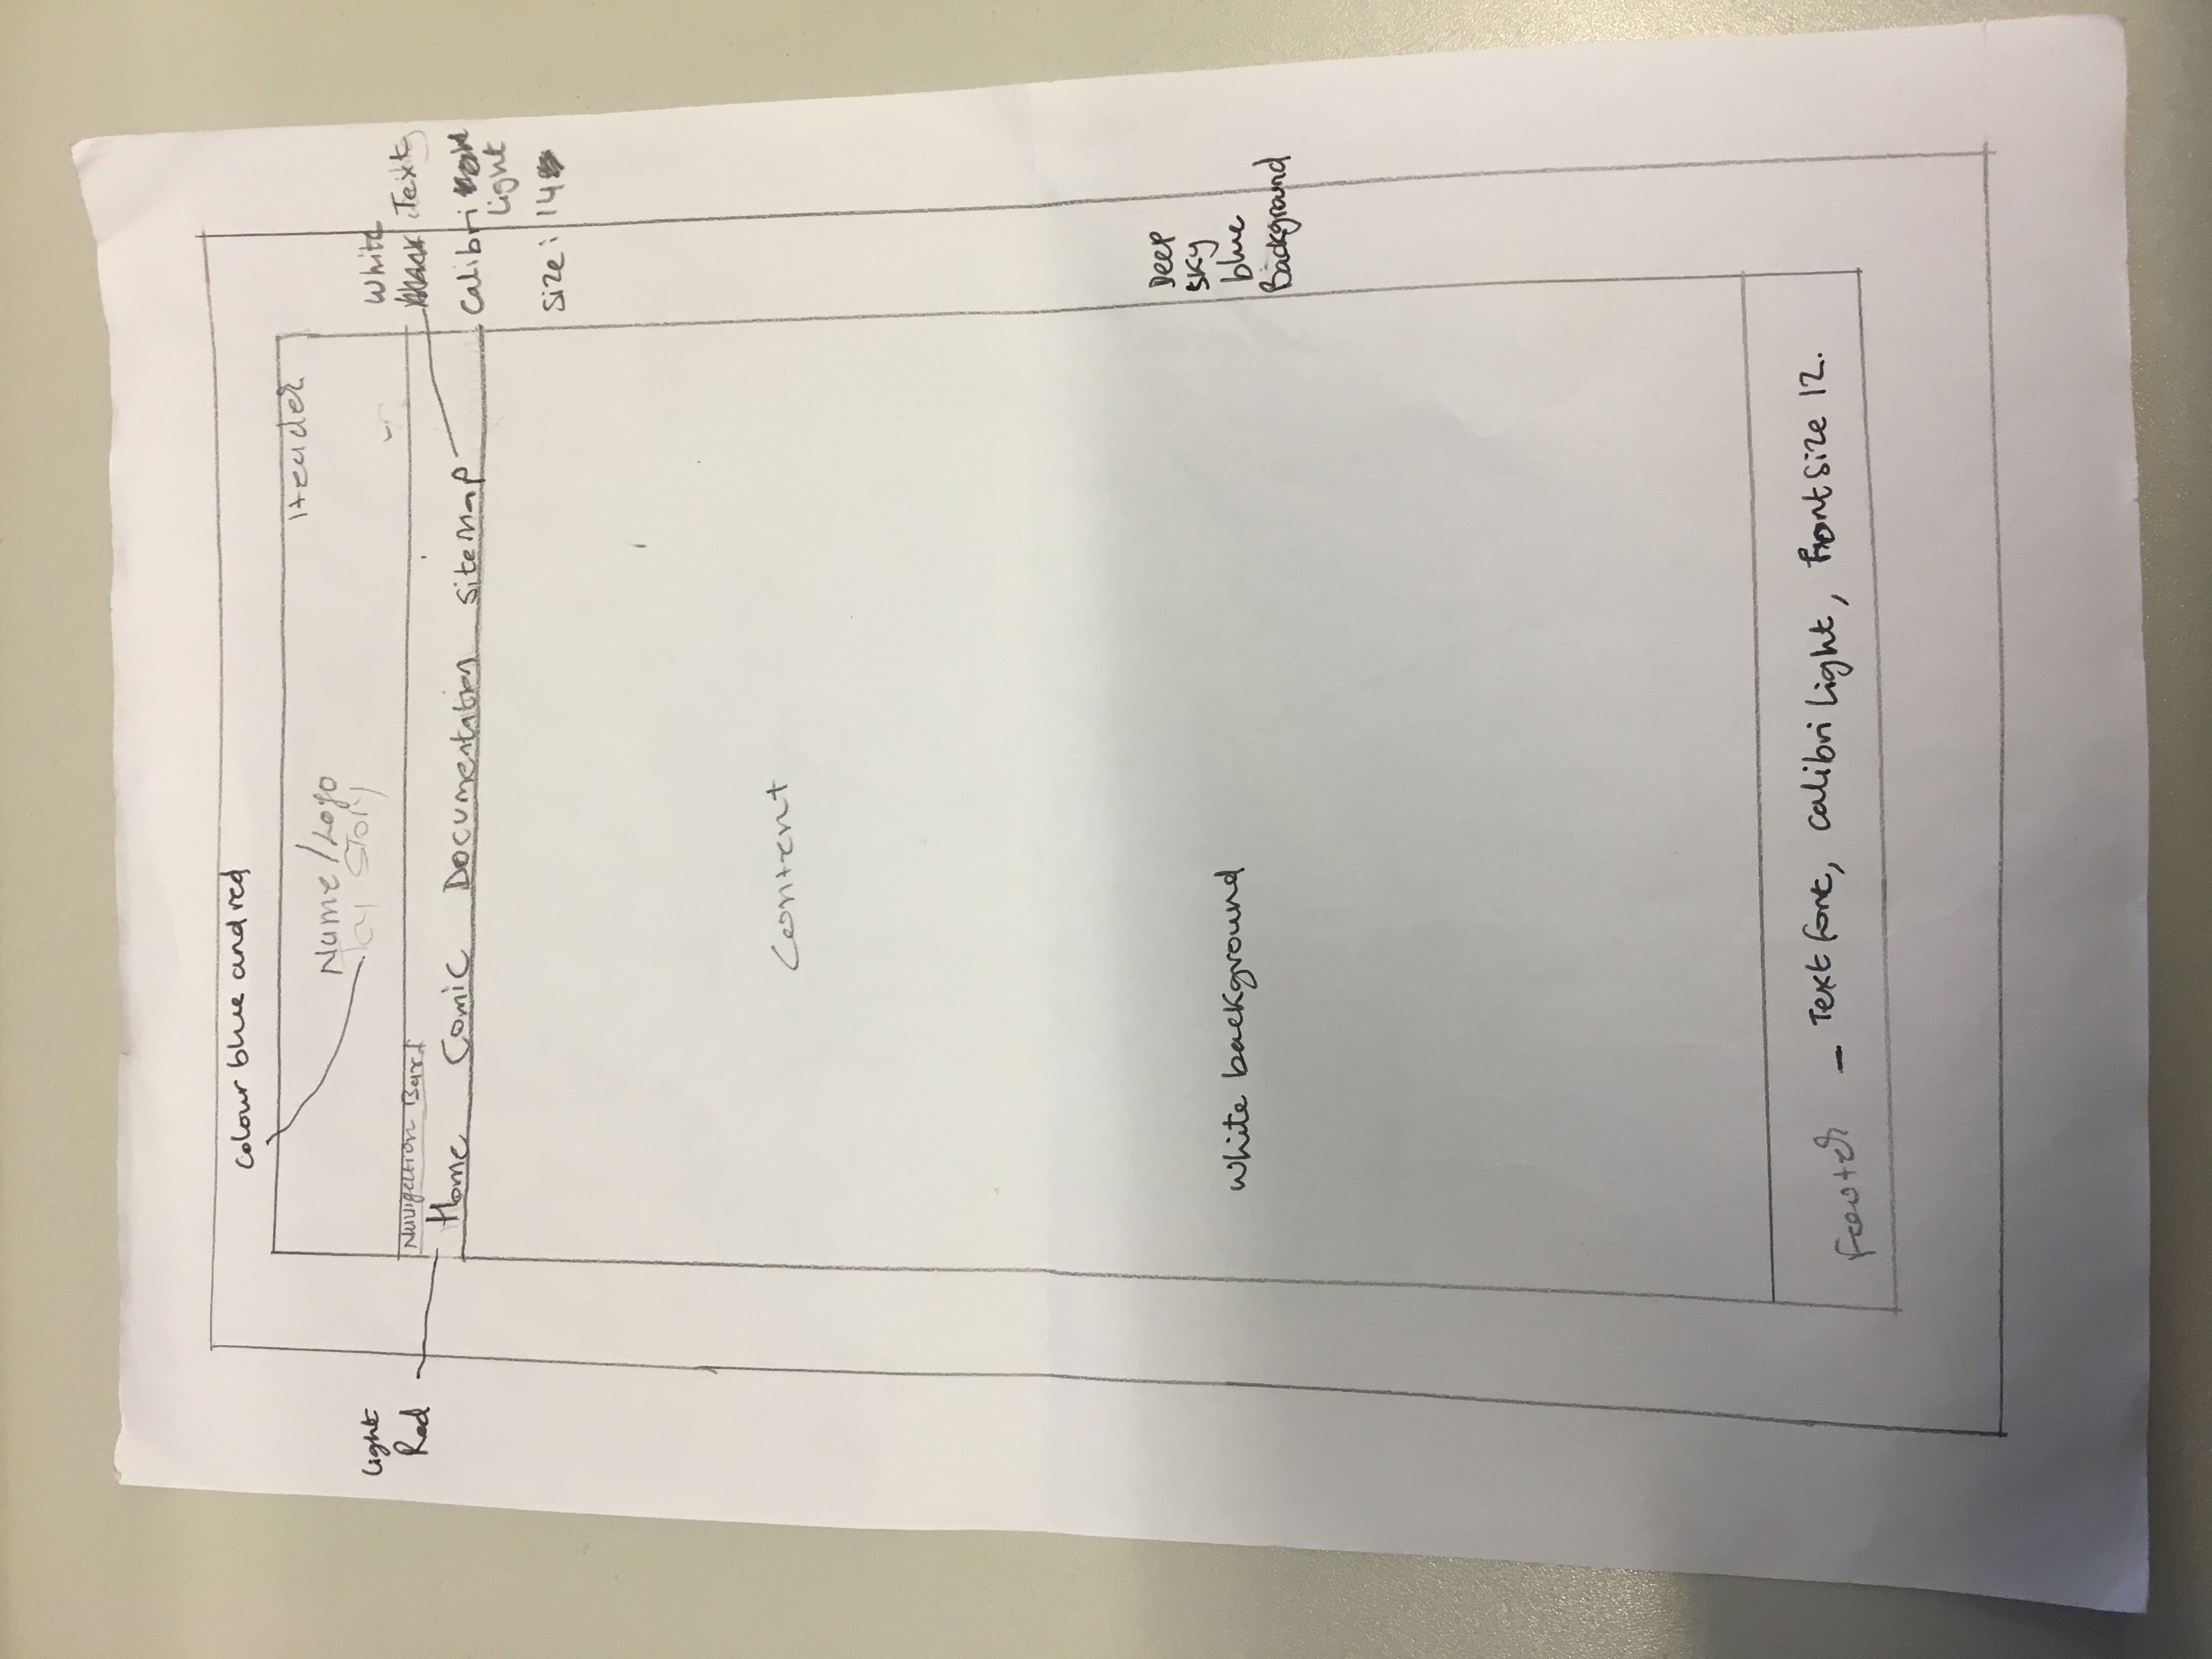 Colour blue and red
Header
Name/Logo
Toy Story
Light
Red
Navigation Bar
Home Comic Documentation sitemap
White
Text
Calibri
Light
Size: 14
Content
White background
Deep
sky
blue
Background
footer - Text font, Calibri Light, Font size 12.